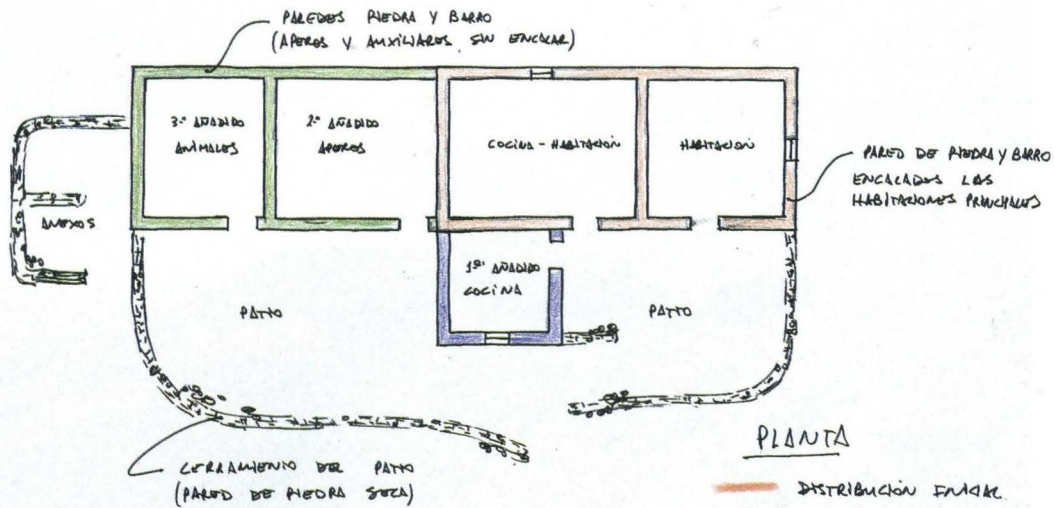 PAREDES PIEDRA Y BARRO
(APEROS Y AUXILIARES SIN ENCALAR)
3º AÑADIDO
ANIMALES
2º AÑADIDO
APEROS
COCINA - HABITACIÓN
HABITACIÓN
PARED DE PIEDRA Y BARRO
ENCALADOS LAS
HABITACIONES PRINCIPALES
ANEXOS
1º AÑADIDO
COCINA
PATIO
PATIO
PLANTA
CERRAMIENTO DEL PATIO
(PARED DE PIEDRA SECA)
DISTRIBUCIÓN INICIAL